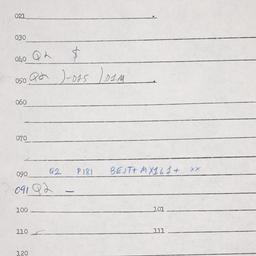 021
030
040 Q2 $
050 Q2 )-015 )01M
060
070
090 Q2 P181 BEJT+MX161+ xx
091 Q2 —
100 101
110 111
120